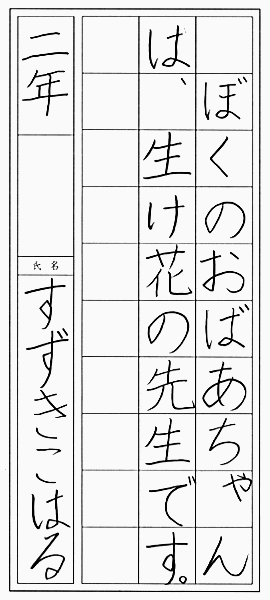 ぼくのおばあちゃん
は、生け花の先生です。
二年
氏名
すずきこはる